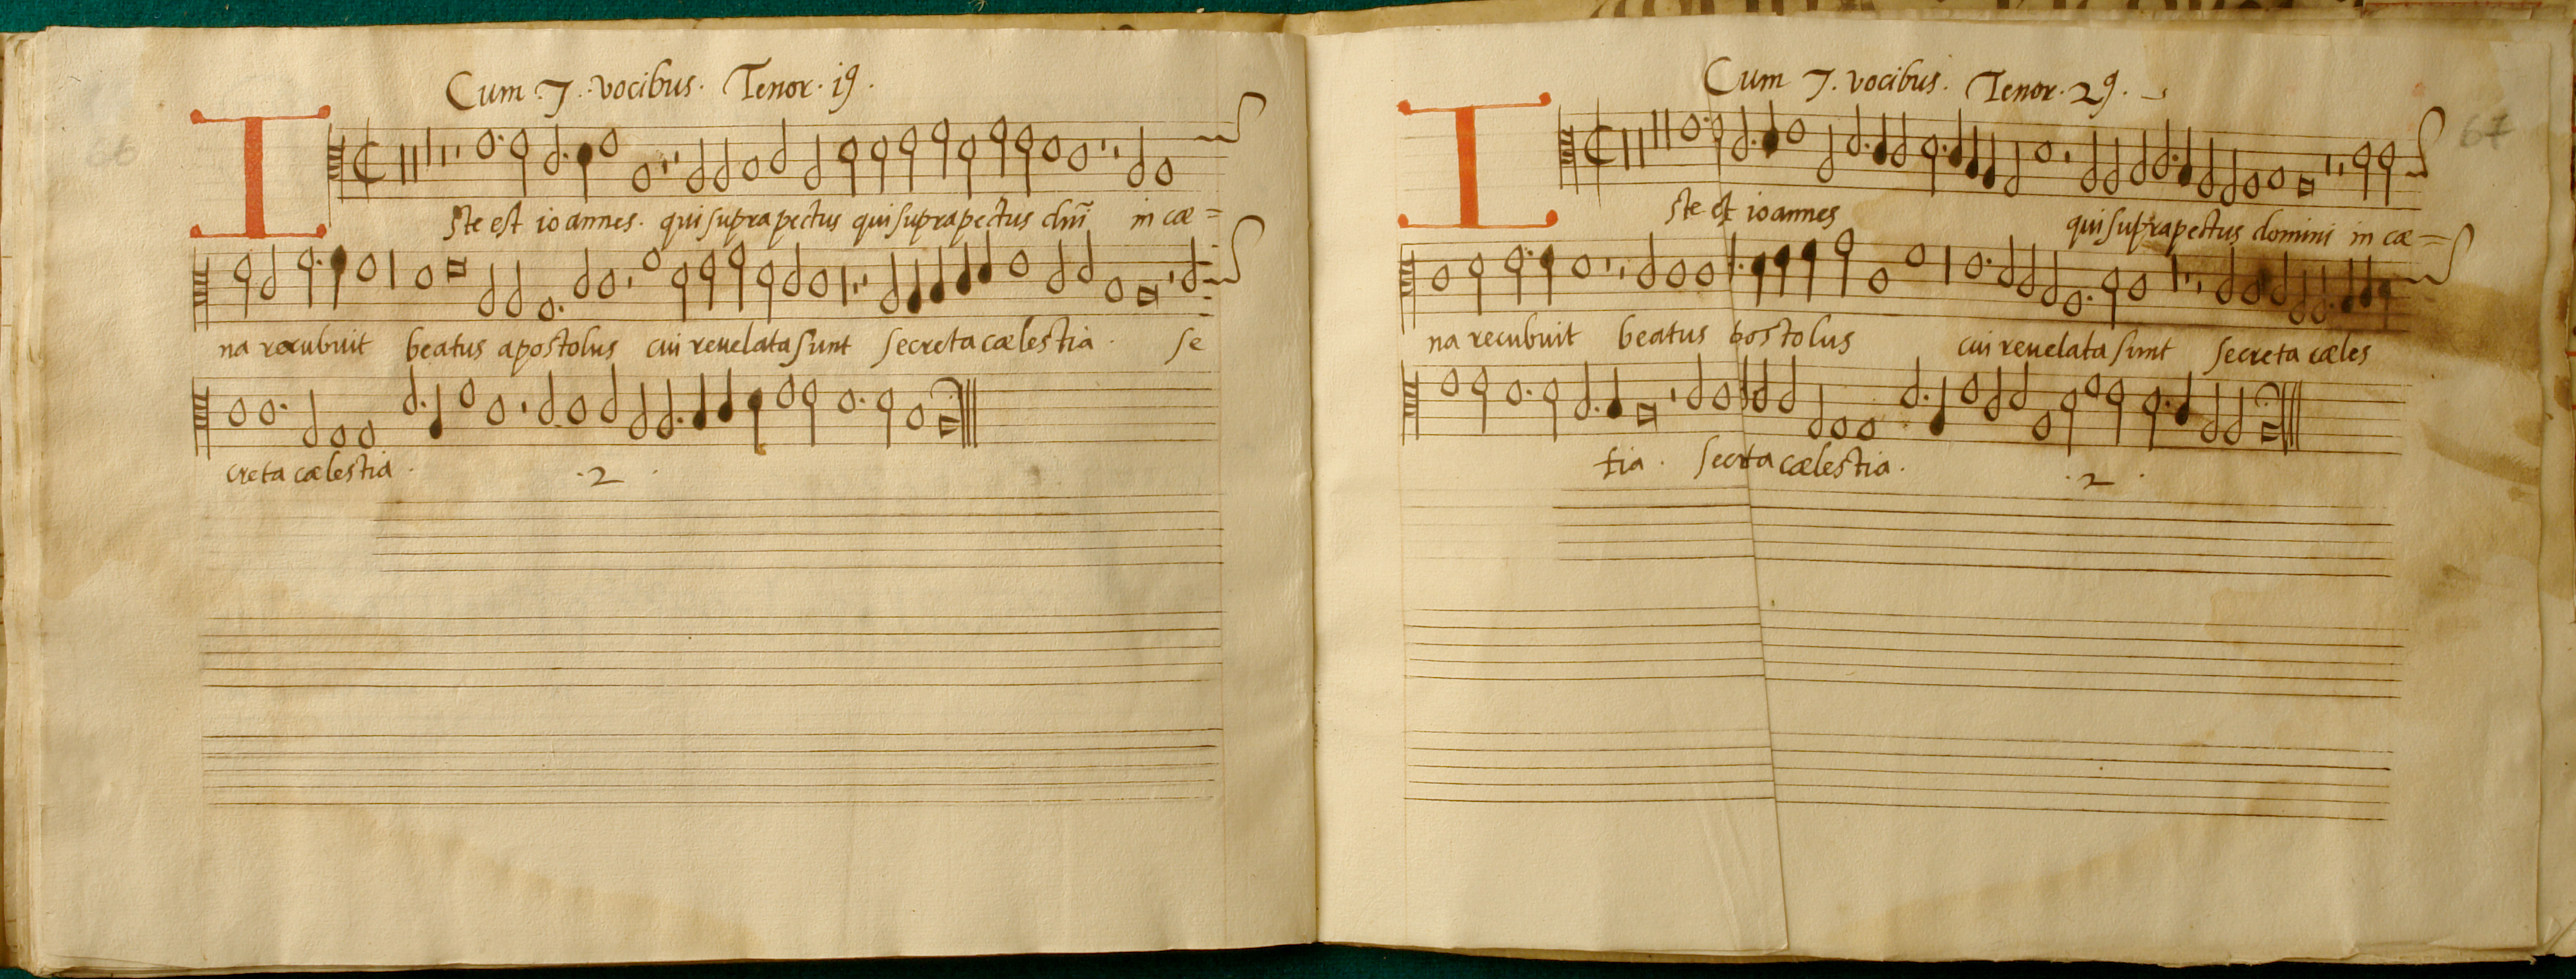 66
Cum .7. vocibus. Tenor. i9.
I
ste est ioannes. qui supra pectus qui supra pectus dnī in cæ=
na recubuit beatus apostolus cui reuelata sunt secreta cælestia. se
creta cælestia. .2.
67
Cum 7. vocibus. Tenor. 29.
I
ste est ioannes qui supra pectus domini in cæ=
na recubuit beatus postolus cui reuelata sunt secreta cæles
tia. secreta cælestia. .2.